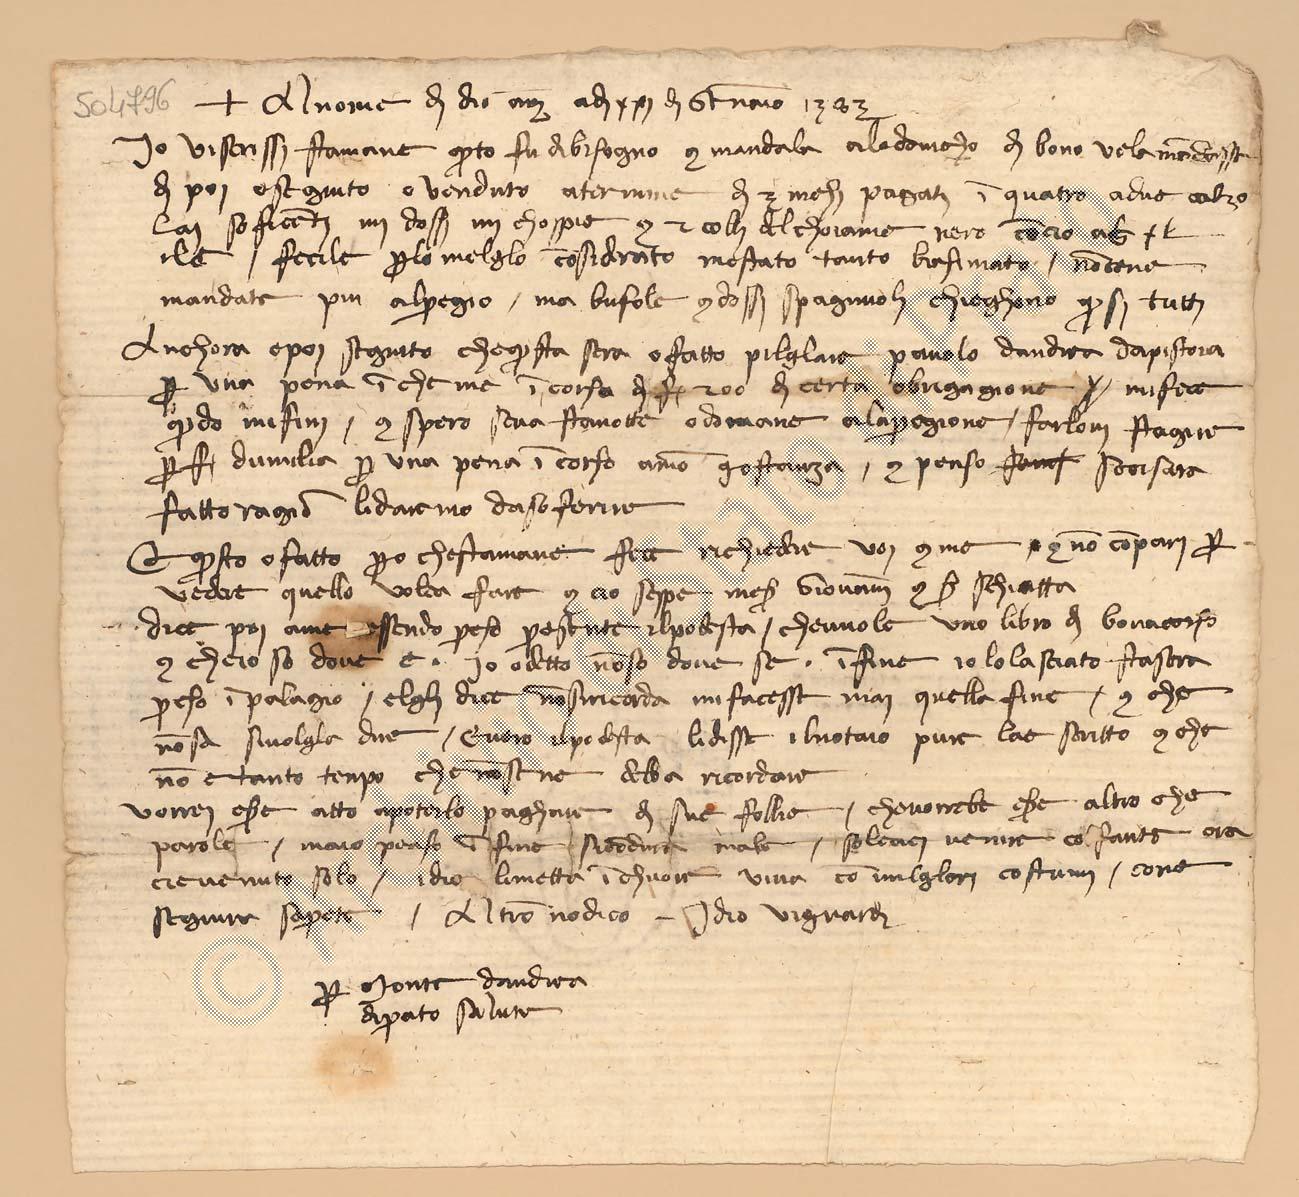 504796
+ Al nome di dio am̄ adi xxi di Giēnaio 1383
Io viscrissi stamane q̄to fu dibisogno e mandala a la domenicho di bono vela mādasse
di poi o seguito o venduto a termine di 3 mesi pagati ī quatro a due calzo
lai soficēti iiii dossi iiii chospie e 2 colli del choiame nero cōcio
fecile p̄lo melglo cōsiderato mostato tanto biasimato / nōtene
mandate piu alpregio / ma bufole e dossi spagniuoli chieghono q̄si tutti
Anchora o poi seguito che q̄sta sera o fatto pilglare pauolo dandrea dapistoia
p̄ una pena ī che me ī corsa di f̄ 200 di certa obrigagione mi fece
q̄do mi fini / e spero seva stanotte o domane a la p̄egione / farlovi stagire
p̄ f̄ dumilia p̄ una pena ī corso a mō gostanza / e penso
fatto ragiō lidaremo da soferire
E q̄sto o fatto p̄o che stamane fece richiedere voi e me e nō cōpari p̄
vedere quello volea fare e cio seppe mess̄ Giovāni e s̄ schiatta
dice poi ame essendo p̄eso p̄esente il podesta / che vuole uno libro di bonacorso
e che io so dove e . Io o detto nōso dove se . ī fine io lo lasciato stasera
p̄eso ī palagio / elgli dice nōsi ricorda mi facesse mai quella fine / e che
nōsa sivolgla dire / E vero il podesta lidisse il notaio pure lae scritto e che
nō e tanto tempo che nōsene debba ricordare
vorrei eser̄e atto a poterlo paghare di sue follie / che vorrebe eser̄e altro che
parole / ma io penso ī fine male / soleaci venire cō fante ora
cievenuto solo / idio limetta ī chuore viva cō milglori costumi / come
seguira sapete / Altro nō dico – Idio vi guardi
p̄ Monte dandrea
di p̄ato salute